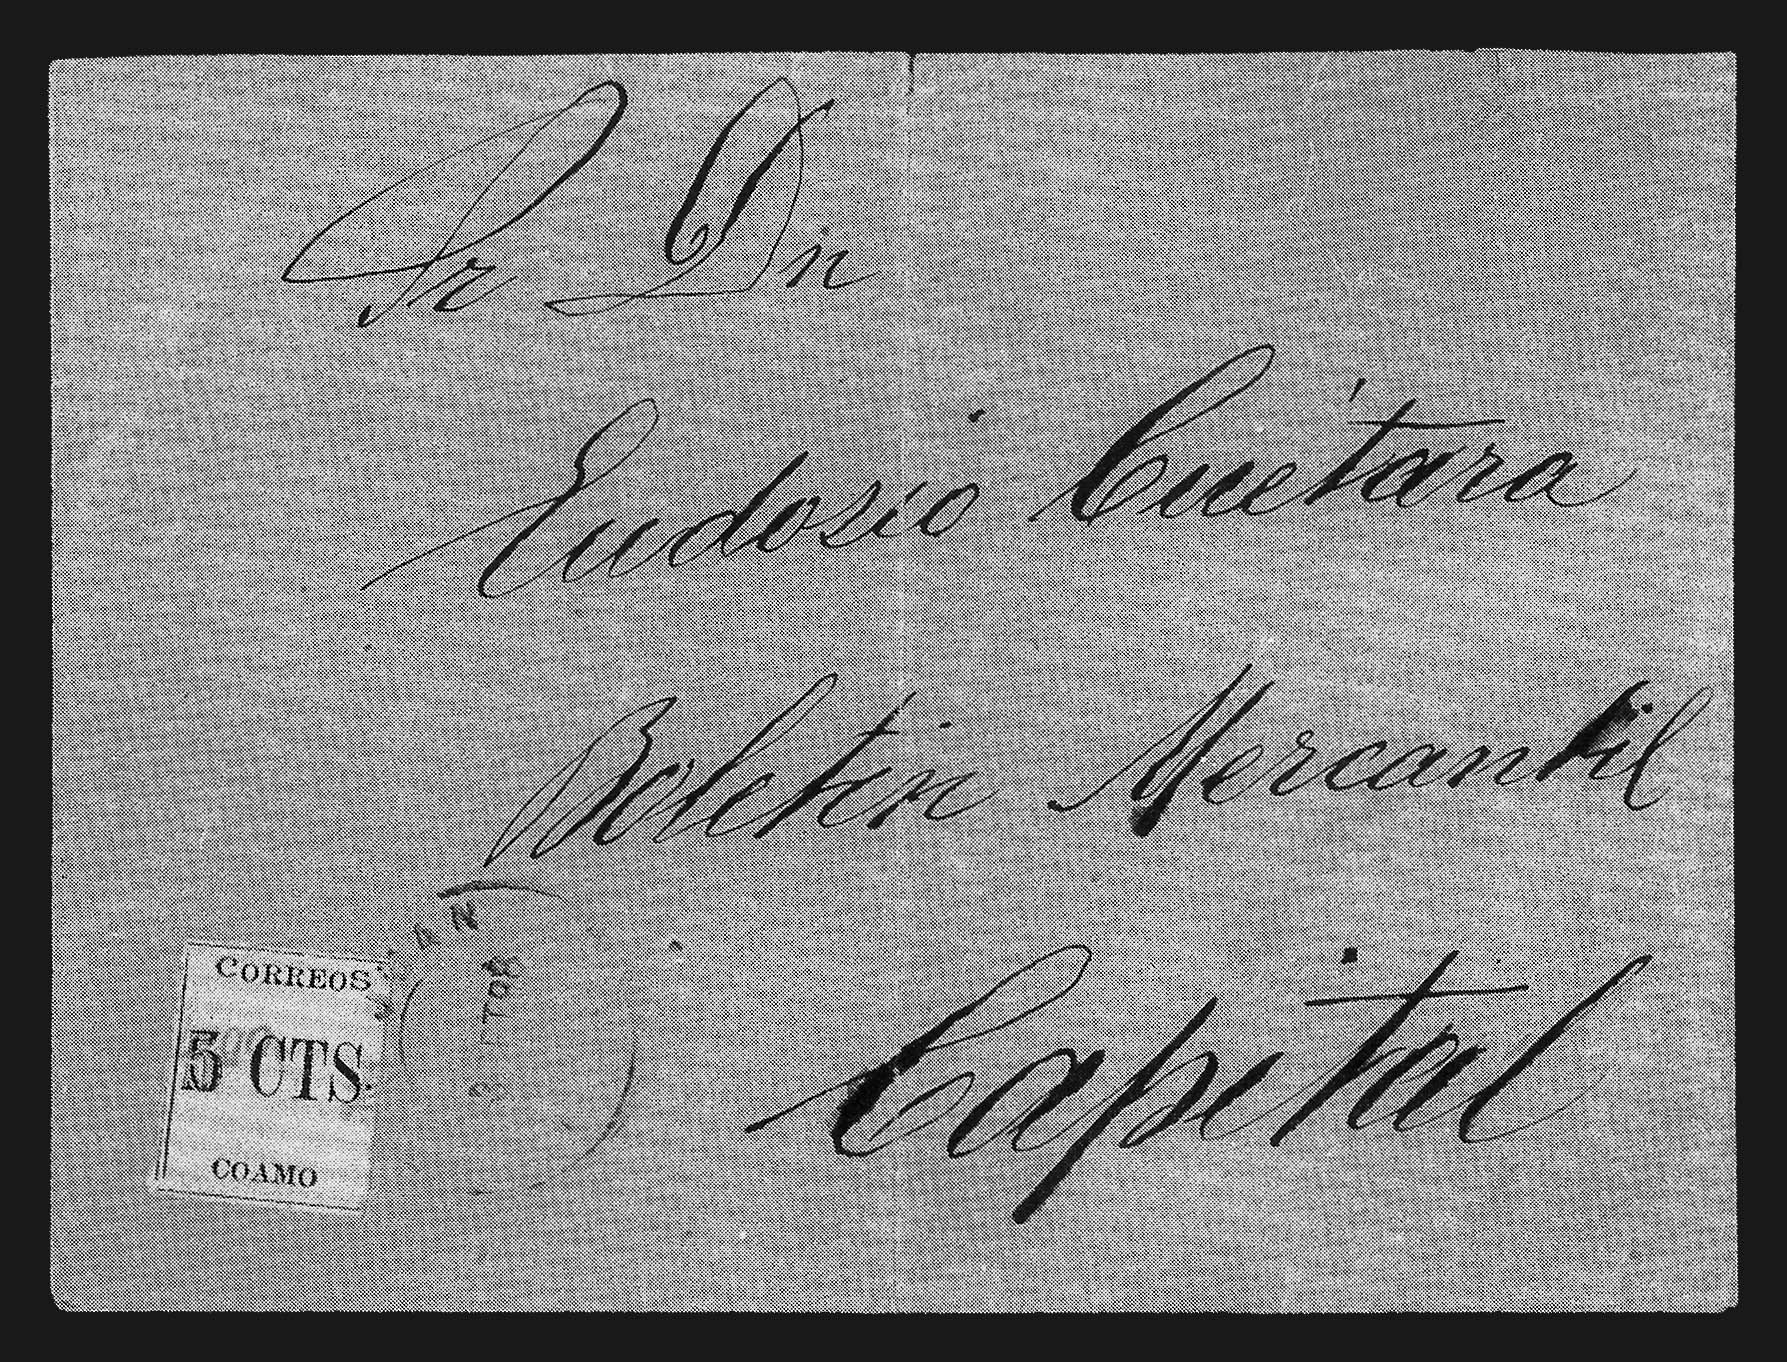 Sr Dn
Eudosio Cuétara
Boletin Mercantil
Capital
CORREOS
5 CTS.
COAMO